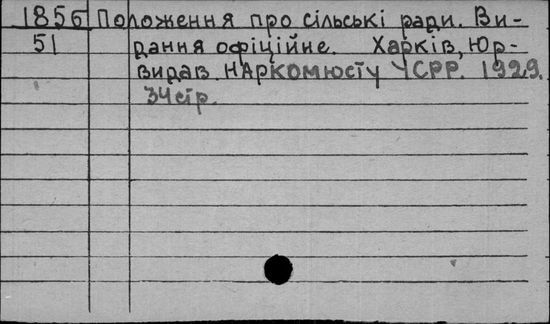 1856 Положення про сільські ради. Ви-
51 дання офіційне. Харків, Юр-
видав. НАркомюсту УСРР. 1929.
34 стр.